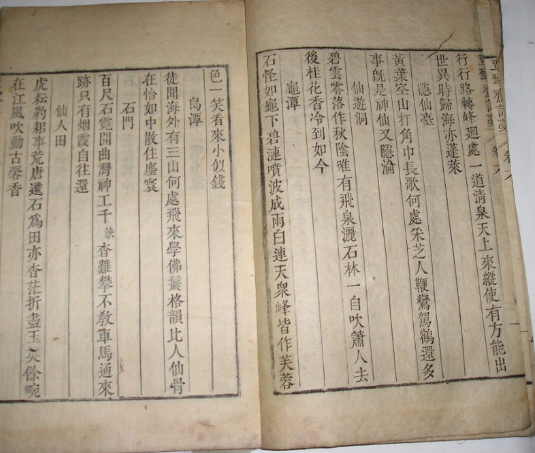 行行路轉峰迴處一道清泉天上來縱使有方能出
世異時歸海亦蓬萊
隱仙巖
黃葉空山打角巾長歌何處采芝人鞭鸞駕鶴還多
事旣是神仙又隱淪
仙遊洞
碧雲零落作秋陰唯有飛泉灑石林一自吹簫人去
後桂花香冷到如今
龜潭
石怪如龜下碧漣噴波成雨白連天衆峰皆作芙蓉
色一笑看來小似錢
鳥潭
徒聞海外有三山何處飛來學佛鬟格韻比人仙骨
在恰如中散住塵寰
石門
百尺石霓開曲灣神工千杳難攀不敎車馬通來
跡只有烟霞自往還
仙人田
虎耘豹耕事荒唐邊石爲田亦杳茫折盡玉餘畹
在江風吹動古香